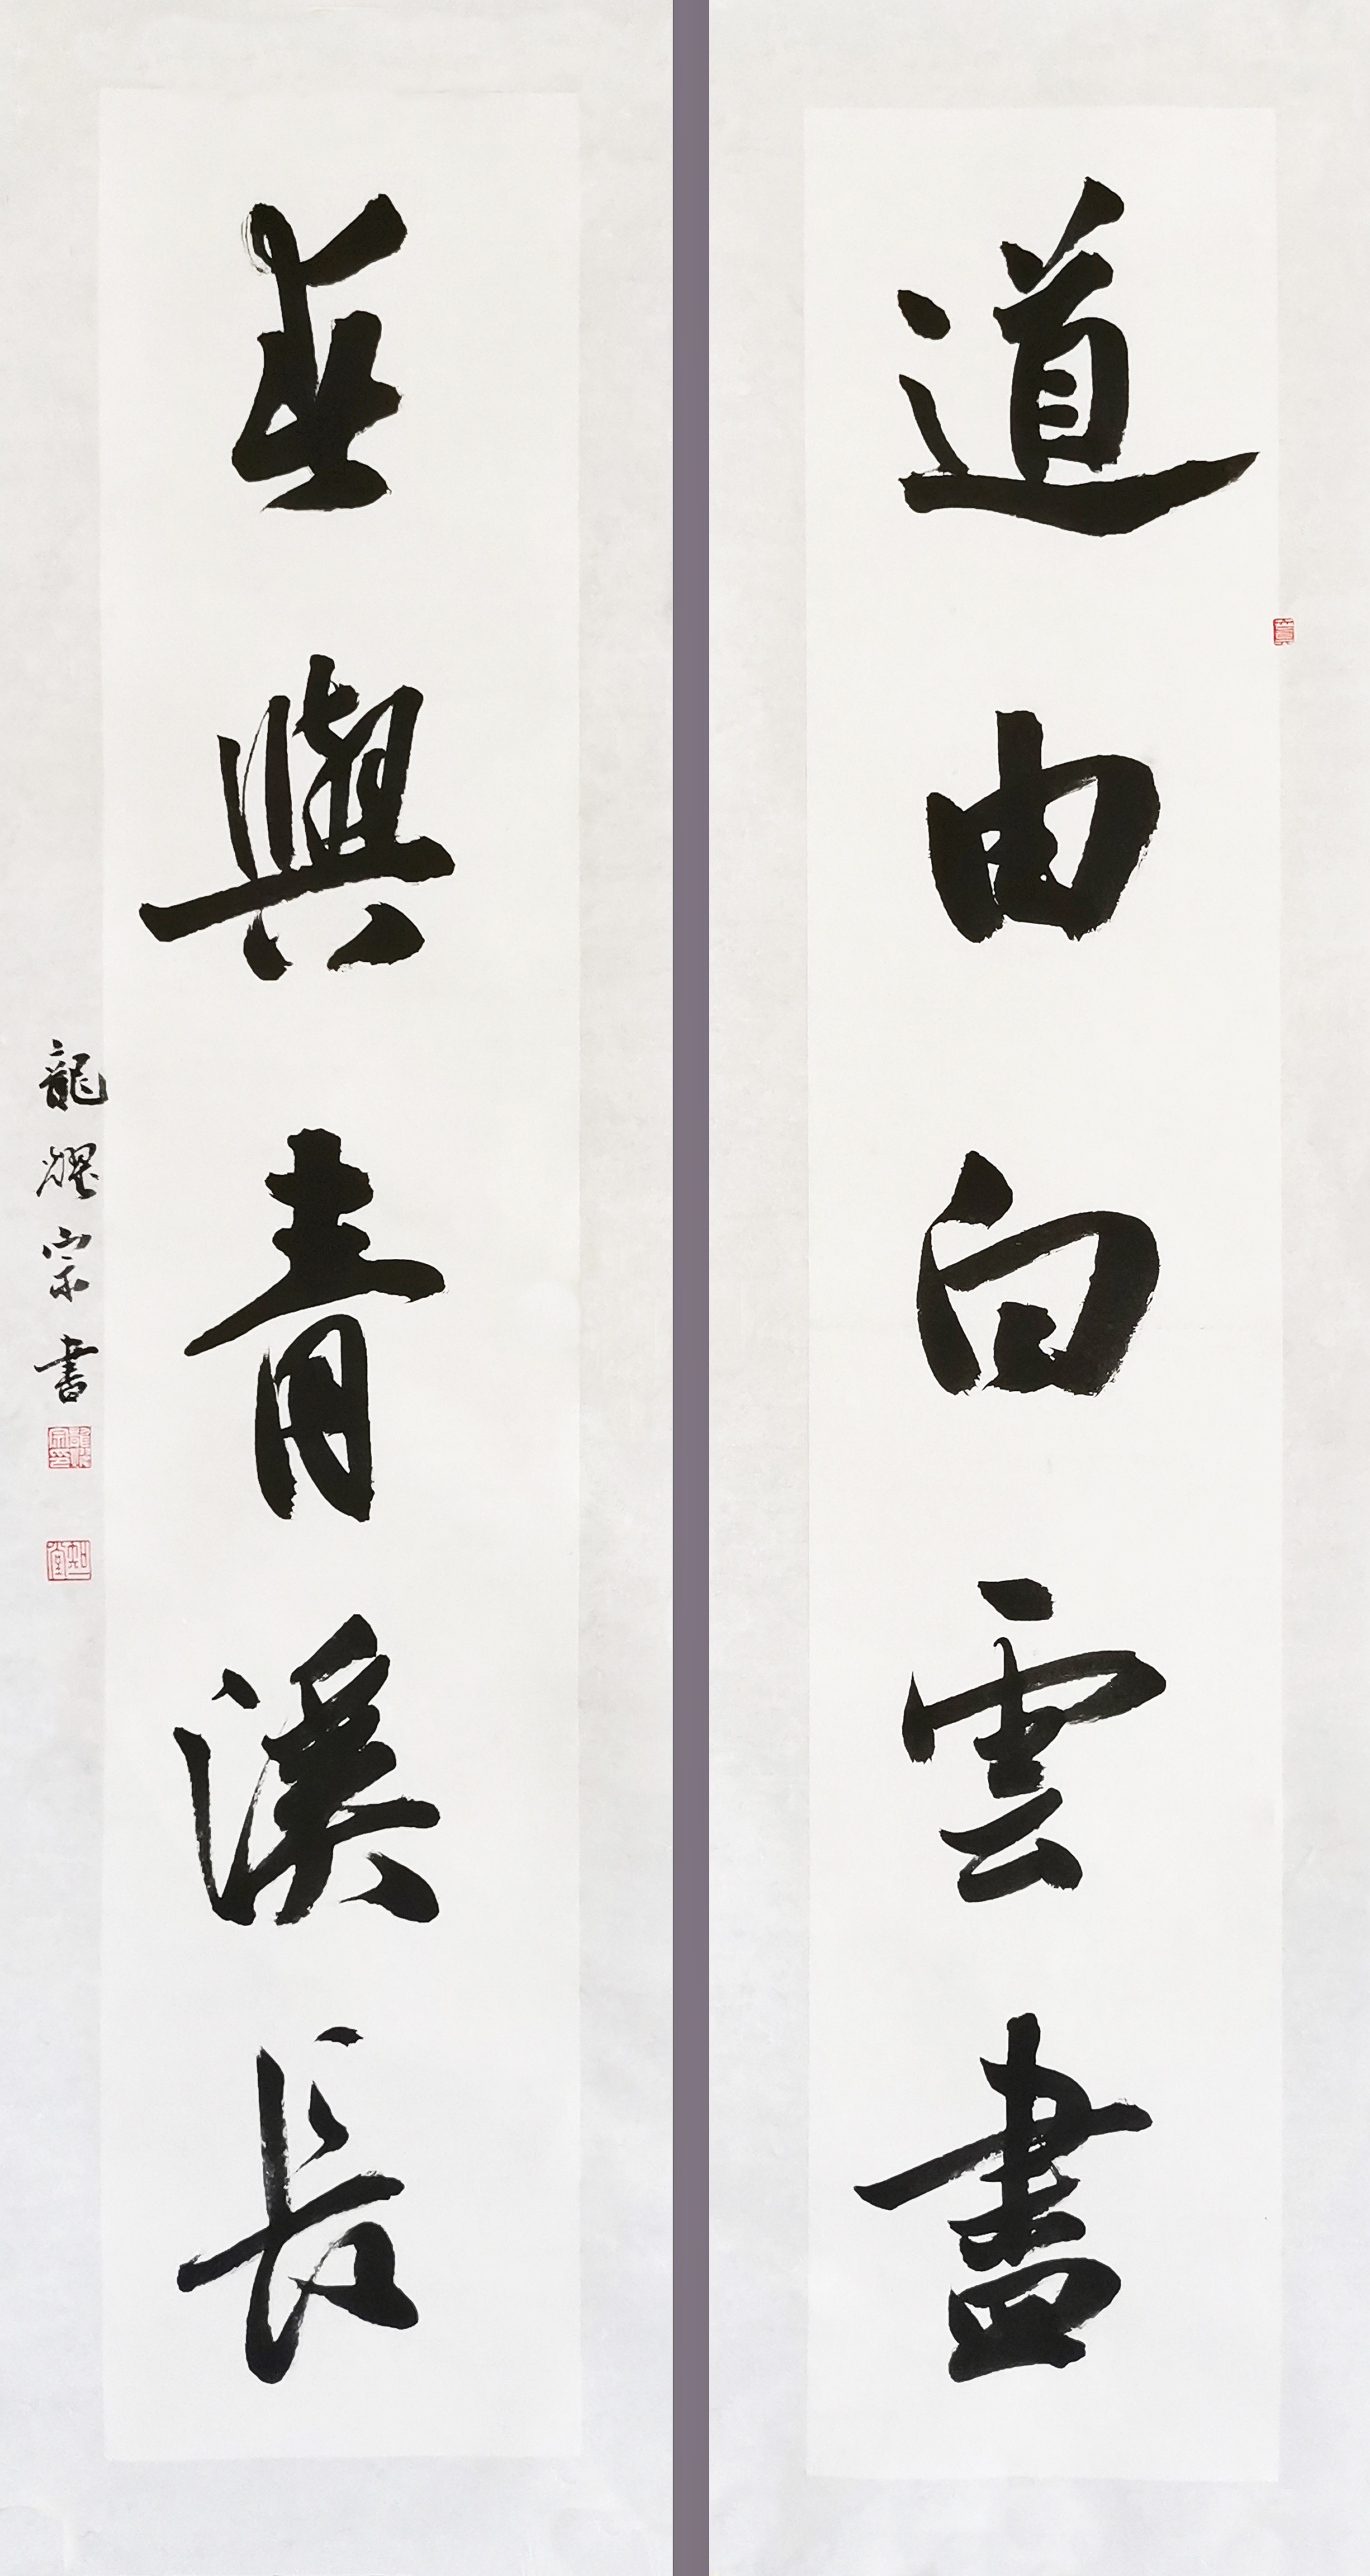 道由白雲盡
春與青溪長
龍耀宗書